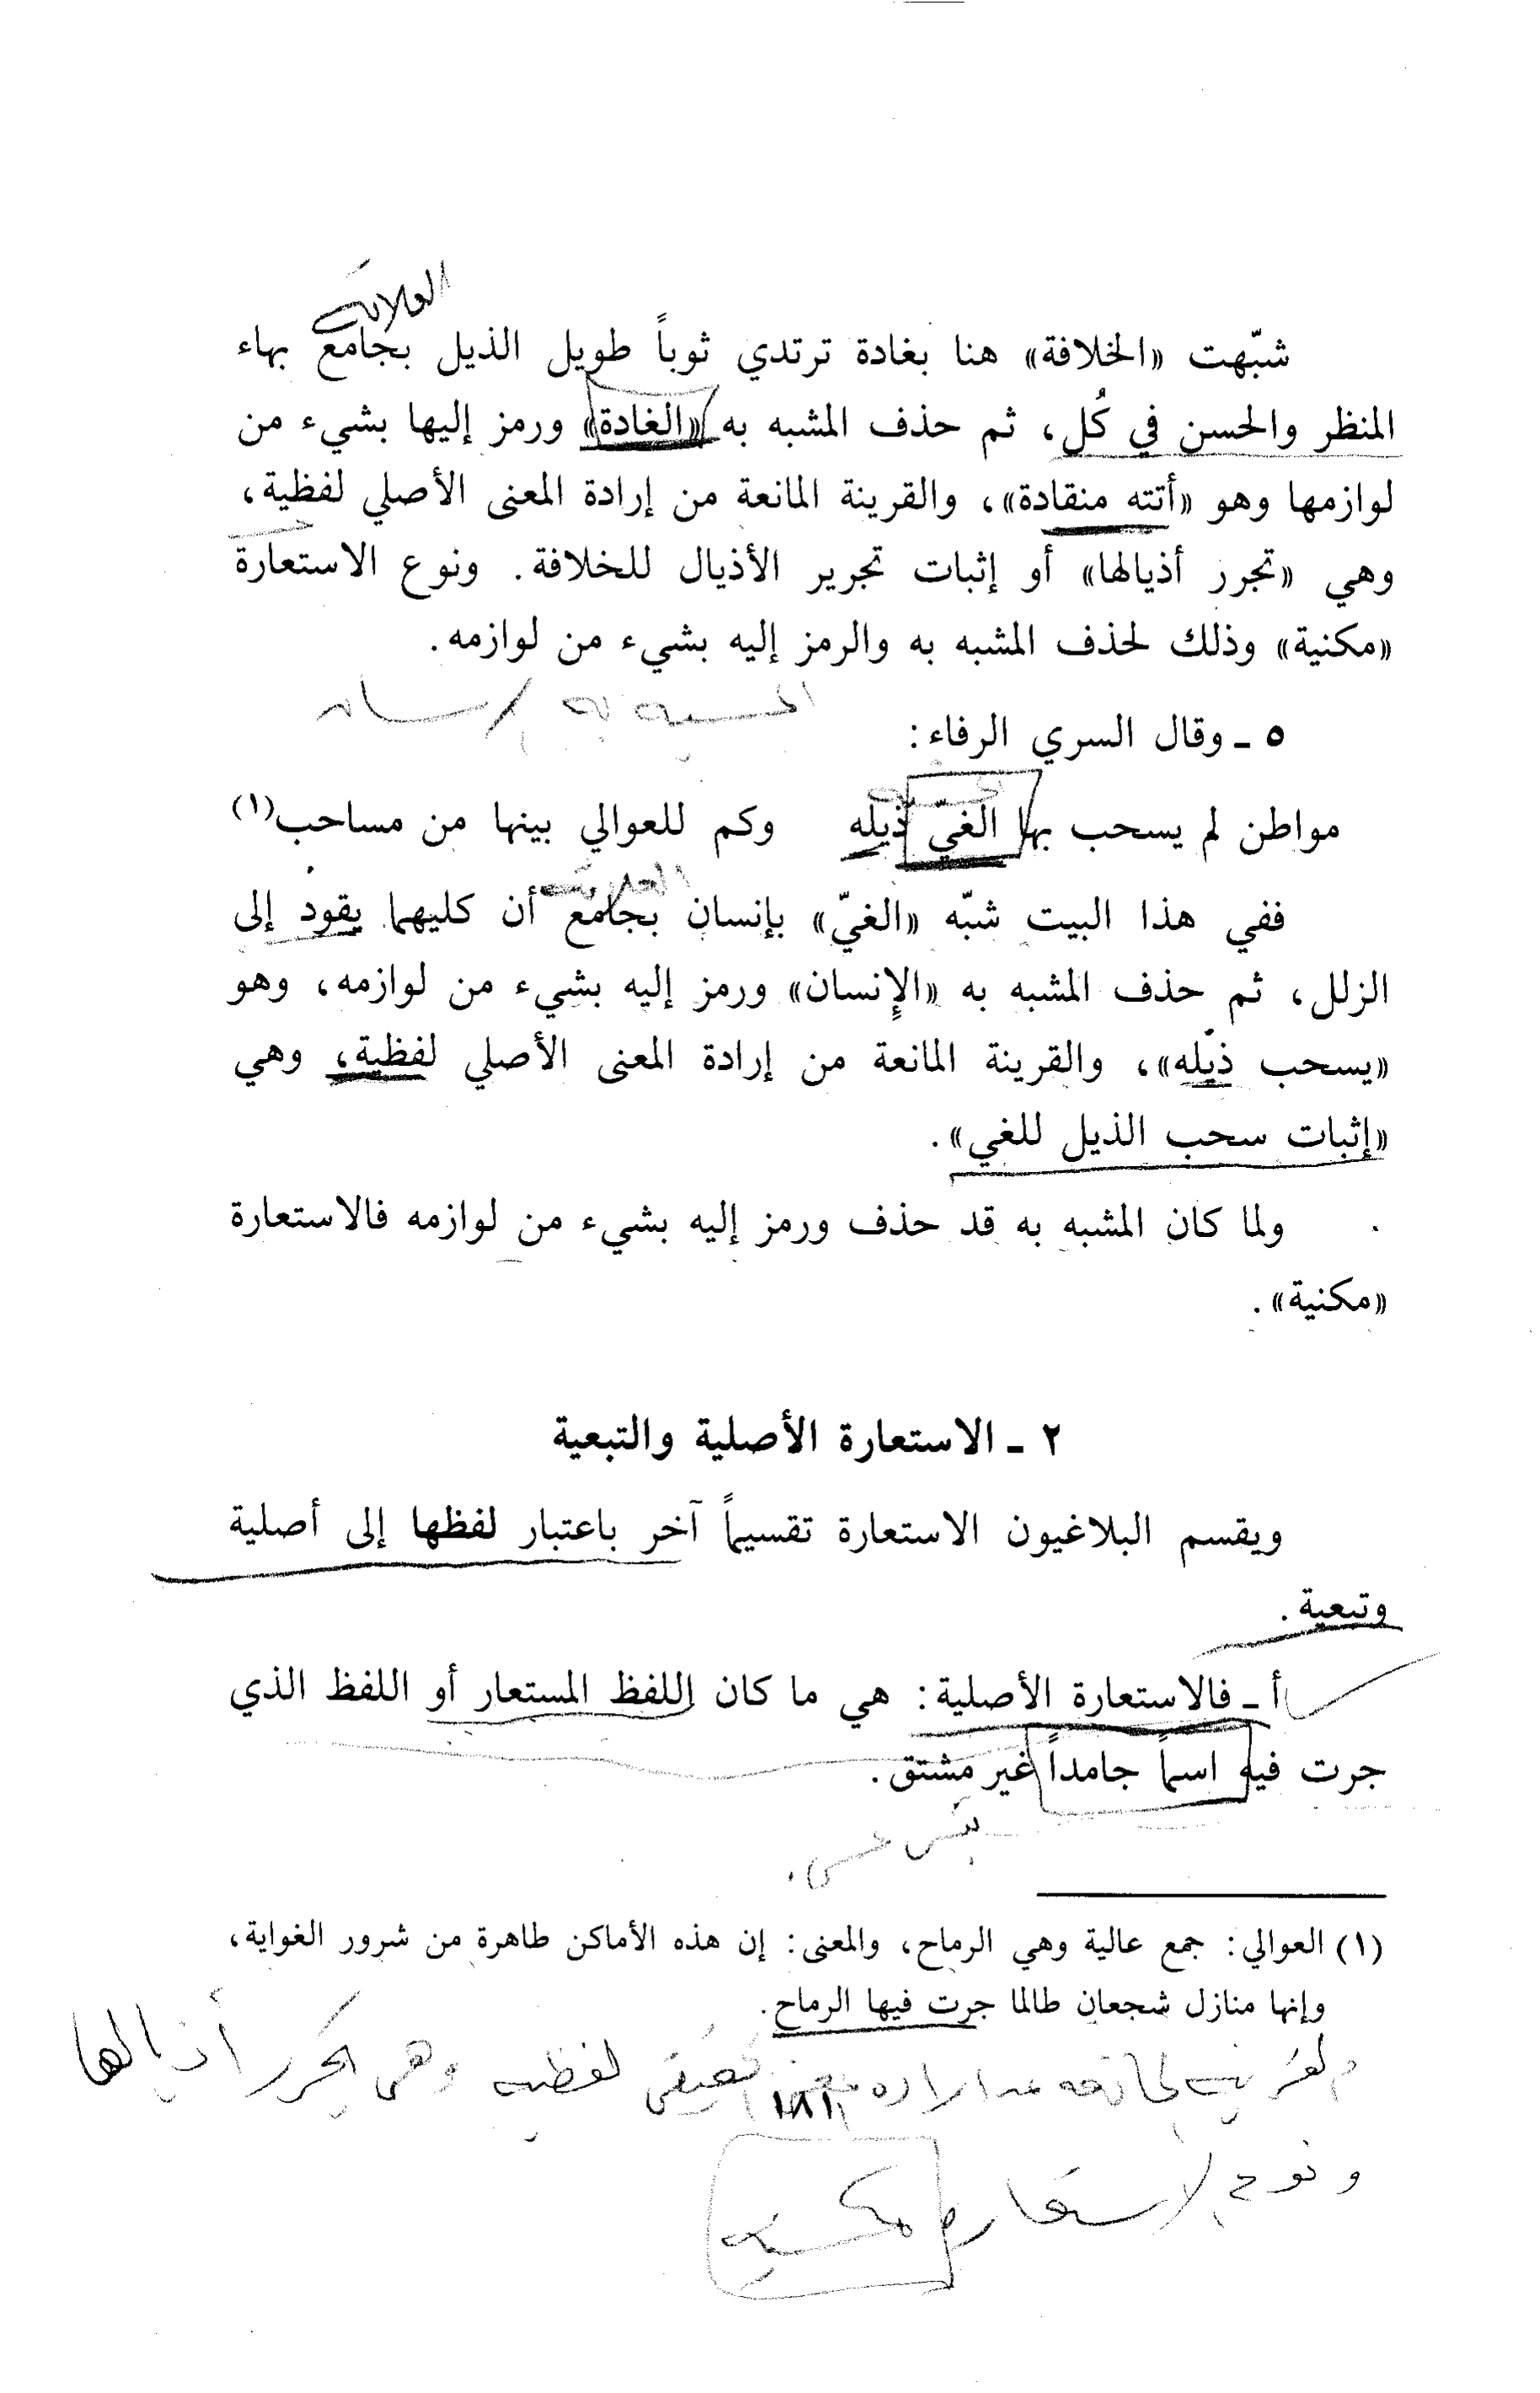 العلاقة
شبّهت «الخلافة» هنا بغادة ترتدي ثوباً طويل الذيل بجامع بهاء
المنظر والحسن في كُل، ثم حذف المشبه به «الغادة» ورمز إليها بشيء من
لوازمها وهو «أتته منقادة»، والقرينة المانعة من إرادة المعنى الأصلي لفظية،
وهي «تجرر أذيالها» أو إثبات تجرير الأذيال للخلافة. ونوع الاستعارة
«مكنية» وذلك لحذف المشبه به والرمز إليه بشيء من لوازمه.
المشبه به إنسان
٥ ـ وقال السري الرفاء:
مواطن لم يسحب بها الغيّ ذيله وكم للعوالي بينها من مساحب(١)
العلاقة
ففي هذا البيت شبّه «الغيّ» بإنسان بجامع أن كليهما يقود إلى
الزلل، ثم حذف المشبه به «الإنسان» ورمز إليه بشيء من لوازمه، وهو
«يسحب ذيله»، والقرينة المانعة من إرادة المعنى الأصلي لفظية، وهي
«إثبات سحب الذيل للغي».
ولما كان المشبه به قد حذف ورمز إليه بشيء من لوازمه فالاستعارة
«مكنية».
٢ ـ الاستعارة الأصلية والتبعية
ويقسم البلاغيون الاستعارة تقسيماً آخر باعتبار لفظها إلى أصلية
وتبعية.
أ ـ فالاستعارة الأصلية: هي ما كان اللفظ المستعار أو اللفظ الذي
جرت فيه اسماً جامداً غير مشتق.
(١) العوالي: جمع عالية وهي الرماح، والمعنى: إن هذه الأماكن طاهرة من شرور الغواية،
وإنها منازل شجعان طالما جرت فيها الرماح.
القرينة المانعة من اراده معنى الحقيقي لفظيه وهي تجرر أذيالها
١٨١
ونوع الاستعاره مكنيه